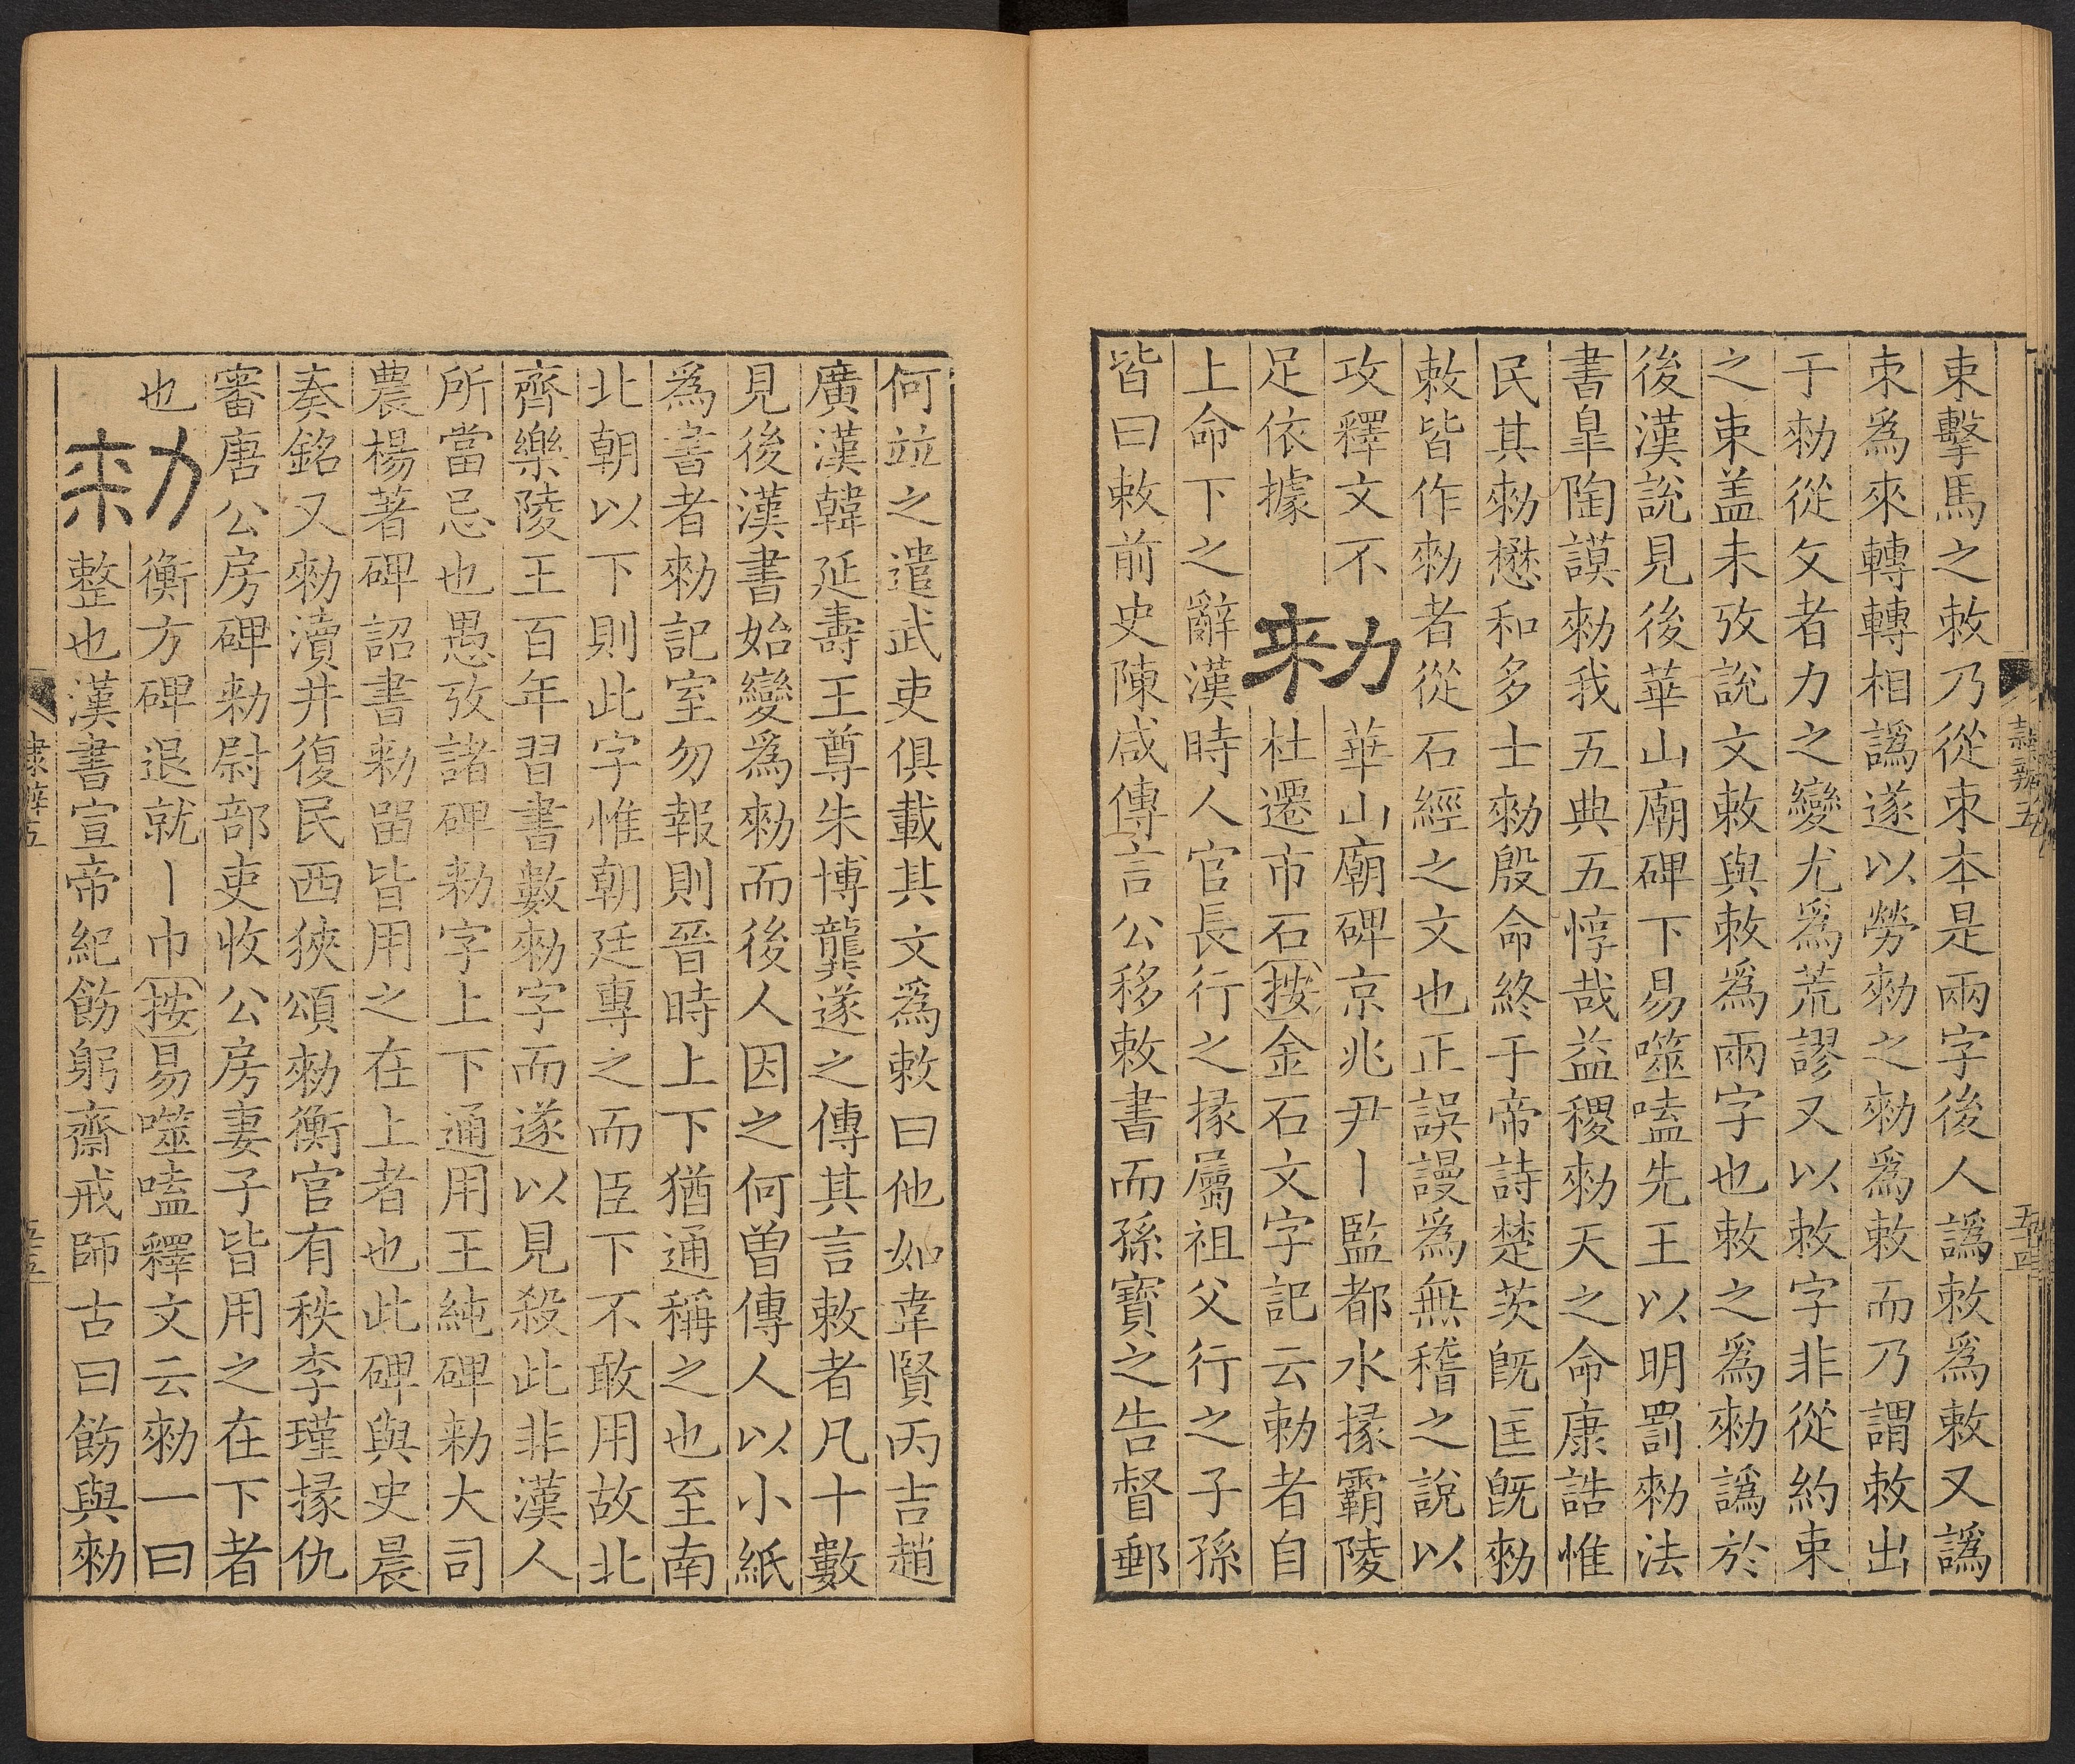 隸辨五
五十四
朿擊馬之敕乃從朿本是兩字後人譌敕爲敕又譌
朿爲來轉轉相譌遂以勞勑之勑爲敕而乃謂敕出
于勑從攵者力之變尤爲荒謬又以敕字非從約束
之束盖未攷說文敕與敕爲兩字也敕之爲勑譌於
後漢說見後華山廟碑下易噬嗑先王以明罰勑法
書皐陶謨勑我五典五惇哉益稷勑天之命康誥惟
民其勑懋和多士勑殷命終于帝詩楚茨旣匡旣勑
敕皆作勑者從石經之文也正誤謾爲無稽之說以
攻釋文不
足依據
勑
華山廟碑京兆尹丨監都水掾霸陵
杜遷市石按金石文字記云勑者自
上命下之辭漢時人官長行之掾屬祖父行之子孫
皆曰敕前史陳咸傳言公移敕書而孫寶之告督郵
何竝之遣武吏俱載其文爲敕曰他如韋賢丙吉趙
廣漢韓延壽王尊朱博龔遂之傳其言敕者凡十數
見後漢書始變爲勑而後人因之何曾傳人以小紙
爲書者勑記室勿報則晉時上下猶通稱之也至南
北朝以下則此字惟朝廷專之而臣下不敢用故北
齊樂陵王百年習書數勑字而遂以見殺此非漢人
所當忌也愚攷諸碑勑字上下通用王純碑勑大司
農楊著碑詔書勑畱皆用之在上者也此碑與史晨
奏銘又勑瀆井復民西狹頌勑衡官有秩李瑾掾仇
審唐公房碑勑尉部吏收公房妻子皆用之在下者
也
勑
衡方碑退就丨巾按易噬嗑釋文云勑一曰
整也漢書宣帝紀飭躬齋戒師古曰飭與勑
隸辨五
五十五